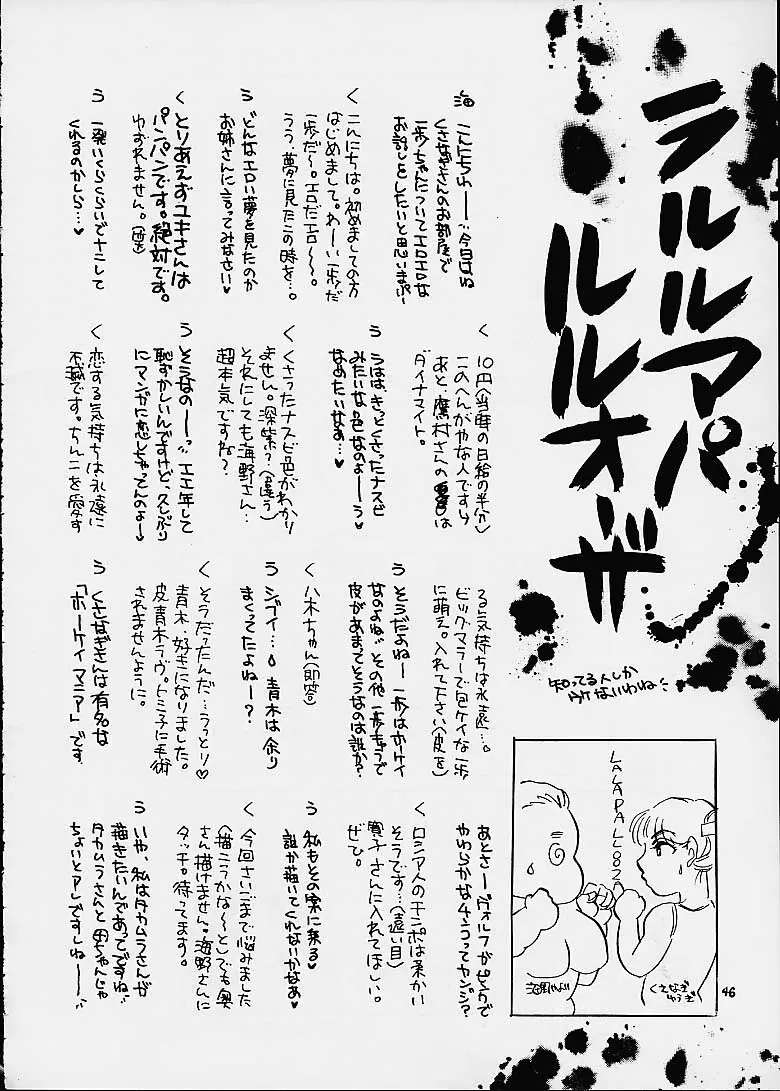 ラルルアパ
ルルオーザ
知ってる人しか
ウケないわね
海 こんにちわーー今日はね
くさなぎさんのお部屋で
一歩ちゃんについてエロエロな
お話しをしたいと思いまぷー
く こんにちは。初めましての方
はじめまして。わーい一歩だ
一歩だ〜。エロだエロ〜〜。
うう、夢に見たこの時を…。
う どんなエロい夢を見たのか
お姉さんに言ってみなさい♥
く とりあえずユキさんは
パンパンです。絶対です。
ゆずれません。
う 一発いくらくらいでナニして
くれるのかしら…♥
く 10円(当時の日給の半分)
このへんがやな人ですら
あと、鷹村さんの
は
ダイナマイト。
う うはは、きっとくさったナスビ
みたいな色なのよーーう
なめたいなぁ…♥
く くさったナスビ色がわかり
ません。深紫?(違う)
それにしても海野さん…
超本気ですね?
う そうなのーーッ エエ年して
恥ずかしいんですけど、久しぶり
にマンガに恋しちゃってんのよー
く 恋する気持ちは永遠に
不滅です。ちんこを愛す
る気持ちは永遠…。
ビッグマラーで包ケイな一歩
に萌え。入れて下さい(皮を)
う そうだよねー 一歩はホーケイ
なのよね その他 一歩もうで
皮があまってそうなのは誰か?
く 八木ちゃん(即答)
う シブイ…。青木は余り
まくってたよねー?
く そうだったんだ…うっとり♡
青木、好きになりました。
皮青木ラヴ。トミ子に手術
されませんように。
う くさなぎさんは有名な
「ホーケイマニア」です
あとさー ヴォルフがピンクで
やわらかなチンコってカンジ?
く ロシア人のチンポは柔かい
そうです…(遠い目)
寛子さんに入れてほしい。
ぜひ。
う 私もその案に乗る♥
誰か描いてくれないかなあ♥
く 今回さいごまで悩みました
(描こうかな〜と)でも奥
さん描けません。海野さんに
タッチ。待ってます。
う いや、私はタカムラさんが
描きたいんであってですね
タカムラさんと母ちゃんじゃ
ちょいとアレですしねーー
LALAPALOOZA
海野やよい
くさなぎ
ゆうぎ
46